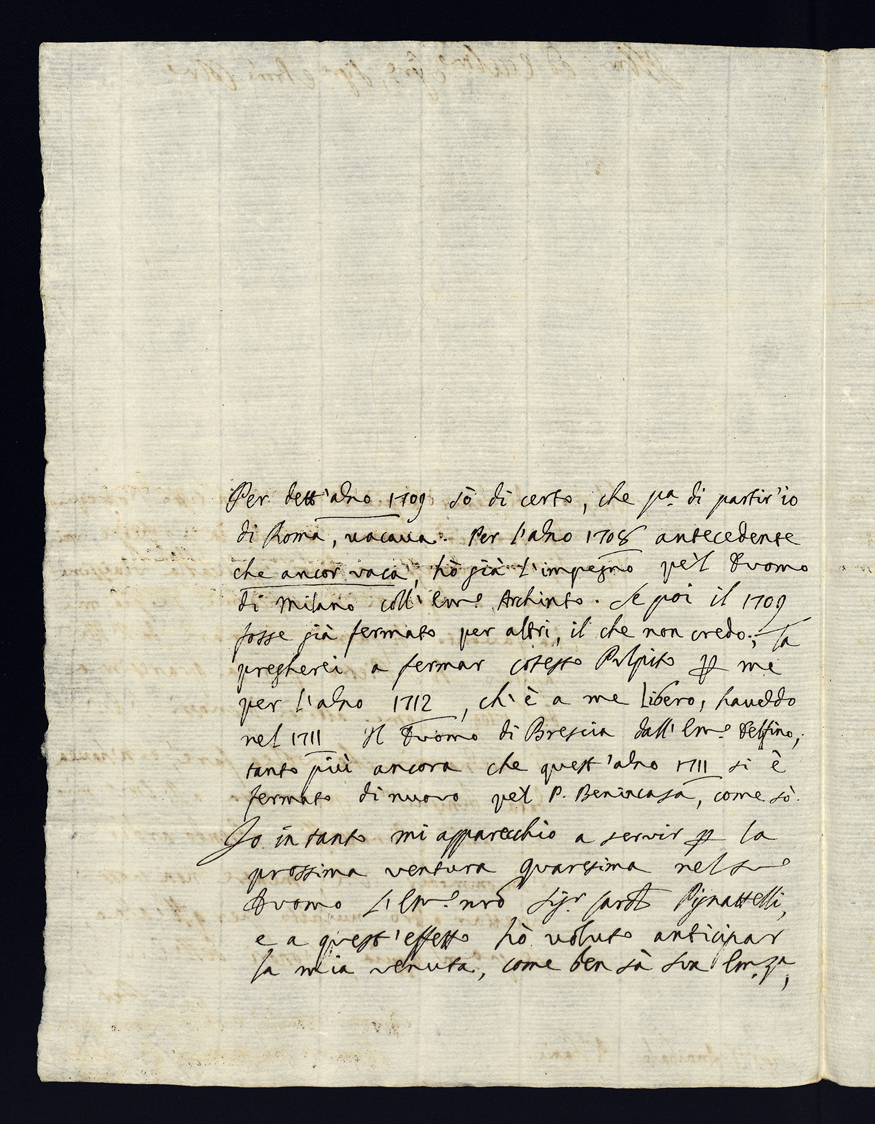 Per dett'anno 1709 sò di certo, che pa. di partir'io
di Roma, vacava. Per l'anno 1708 antecedente
che ancor vaca, hò già l'impegno pe'l Duomo
di Milano coll' Emo. Archinto. Se poi il 1709
fosse già fermato per altri, il che non credo; la
pregherei a fermar cotesto Pulpito p me
per l'anno 1712, ch'è a me libero, havendo
nel 1711 il Duomo di Brescia dall' Emo. Delfino,
tanto più ancora che quest'anno 1711 si è
fermato di nuovo pe'l P. Benincasa, come sò.
Io intanto mi apparecchio a servir p la
prossima ventura quaresima nel suo
Duomo l'Emo. nro Sigr. Card. Pignattelli,
e a quest'effetto hò voluto anticipar
la mia venuta, come ben sà sua Em.za,